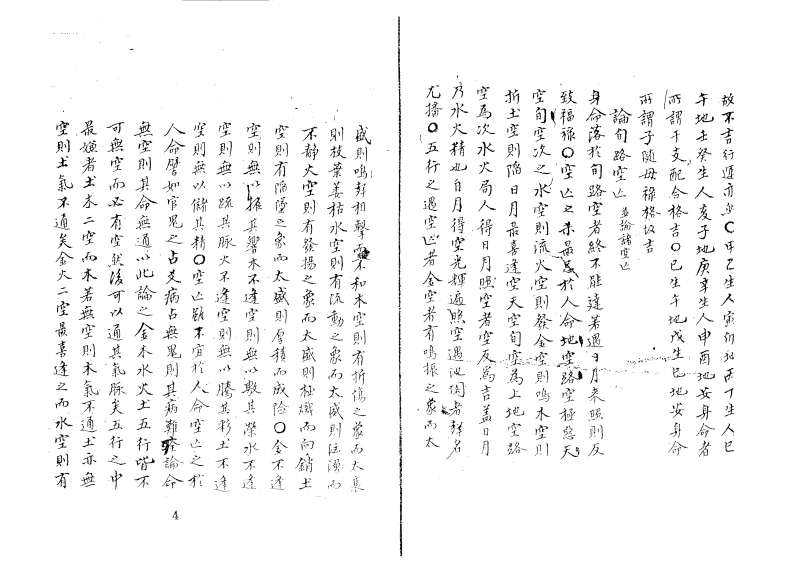 故不吉行遁 〇甲乙生人寅卯地丙丁生人巳
午地壬癸生人亥子地庚辛生人申酉地安身命者
所謂干支配合格吉〇巳生午地戊生巳地安身命
所謂子隨母祿格故吉
論旬路空亡 並論諸空亡
身命落於旬路空者終不能達若遇日月來照則反
致福祿〇空亡之 最 於人命地空路空極惡天
空旬空次之水空則流火空則發金空則鳴木空則
折土空則陷日月最喜逢空天空旬空為上地空路
空為次水火局人得日月照空者空反為吉盖日月
乃水火精也日月得空光輝遍照空遇 者 名
尤播〇五行之遇空亡者金空者有鳴振之象而太
盛則鳴 相擊 不和木空則有折傷之象而太衰
則枝葉萎枯水空則有流動之象而太盛則 而
不靜火空則有發揚之象而太盛則極熾而向銷土
空則有陷墮之象而太盛則厚積而成險〇金不逢
空則無以振其響木不逢空則無以 其榮水不逢
空則無以疏其脉火不逢空則無以騰其彩土不逢
空則無以儲其精〇空亡雖不宜於人命空亡之於
人命譬如官鬼之占爻病占無鬼則其病難 論命
無空則其命無通以此論之金木水火土五行皆不
可無空而必有空然後可以通其氣脉矣五行之中
最嫌者土木二空而木若無空則木氣不通土亦無
空則土氣不通矣金火二空最喜逢之而水空則有
4